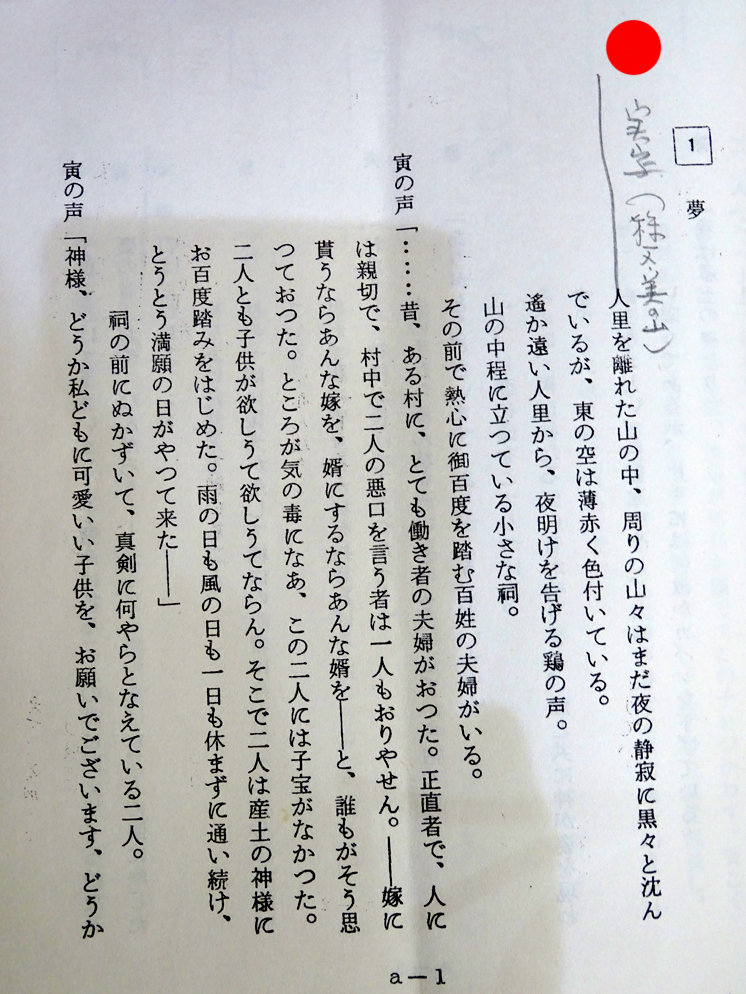 1
夢
人里を離れた山の中、周りの山々はまだ夜の静寂に黒々と沈ん
でいるが、東の空は薄赤く色付いている。
遙か遠い人里から、夜明けを告げる鶏の声。
山の中程に立つている小さな祠。
その前で熱心に御百度を踏む百姓の夫婦がいる。
寅の声「……昔、ある村に、とても働き者の夫婦がおつた。正直者で、人に
は親切で、村中で二人の悪口を言う者は一人もおりやせん。――嫁に
貰うならあんな嫁を、婿にするならあんな婿を――と、誰もがそう思
つておつた。ところが気の毒になあ、この二人には子宝がなかつた。
二人とも子供が欲しうて欲しうてならん。そこで二人は産土の神様に
お百度踏みをはじめた。雨の日も風の日も一日も休まずに通い続け、
とうとう満願の日がやつて来た――」
祠の前にぬかずいて、真剣に何やらとなえている二人。
寅の声「神様、どうか私どもに可愛いい子供を、お願いでございます、どうか
a－1